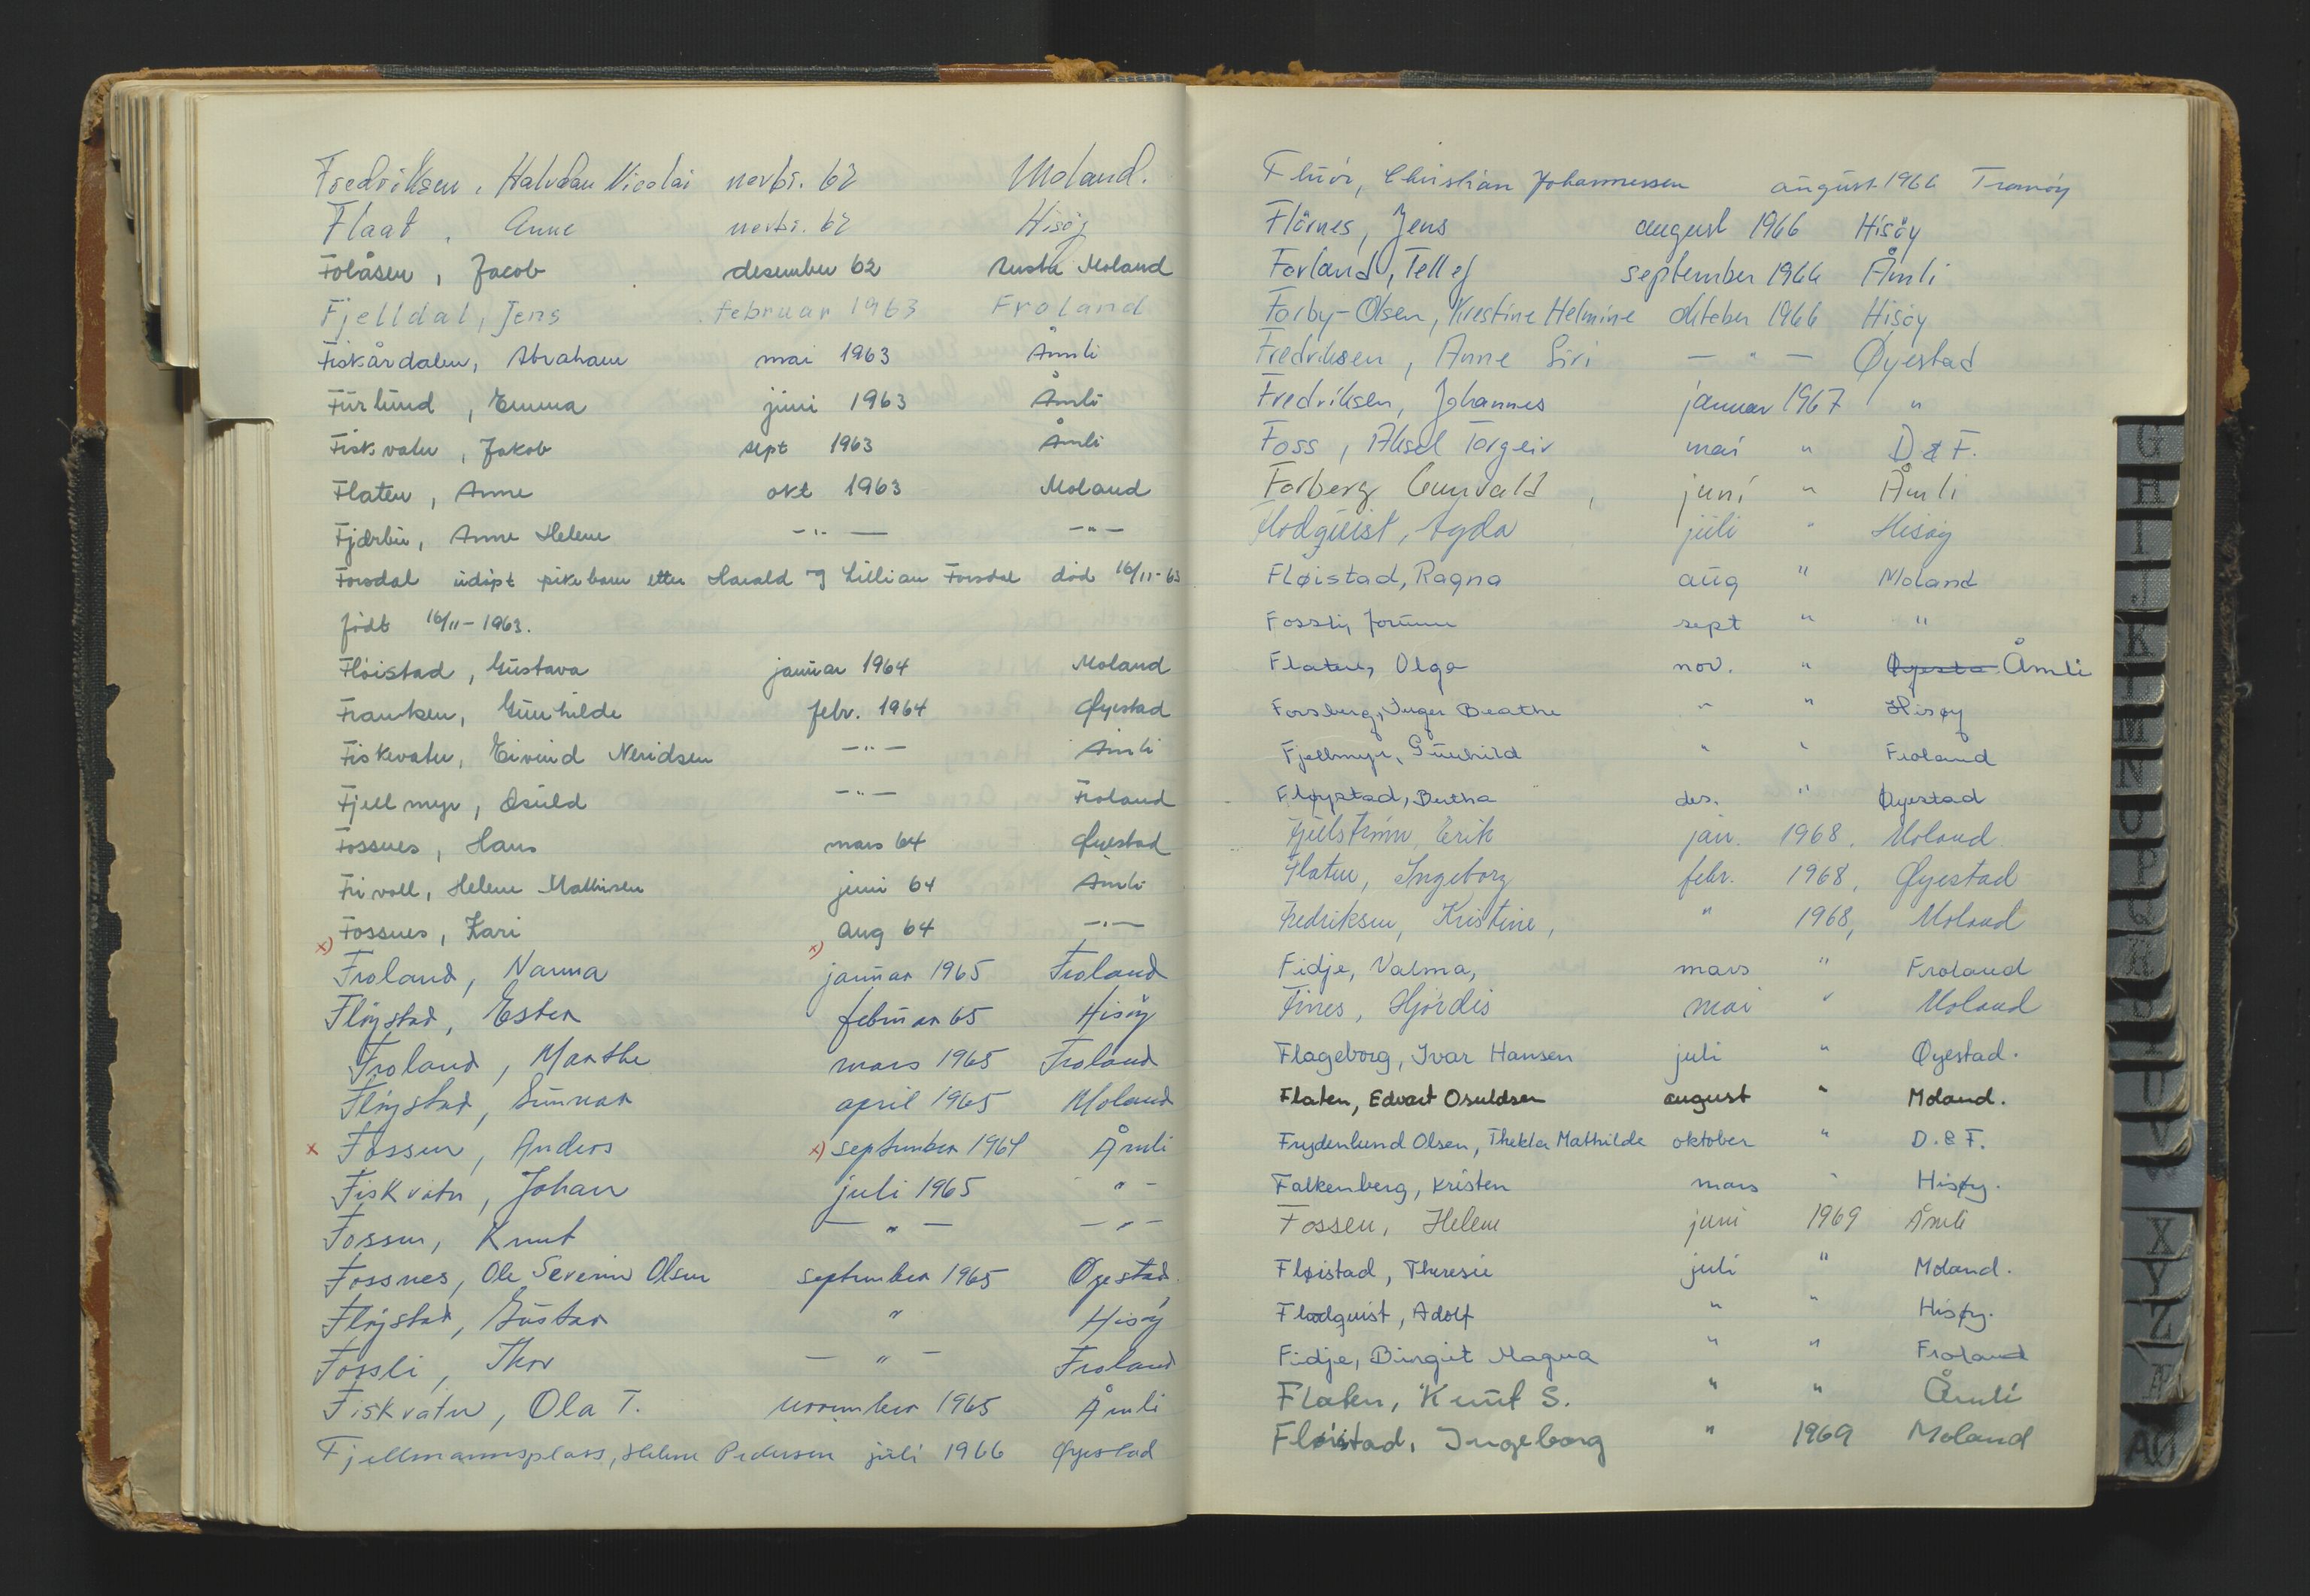 Fredriksen, Halvdan Nicolai novbr. 62 Moland.
Flaat, Anne novbr. 62 Hisøy
Folåsen, Jacob desember 62 Austre Moland
Fjelldal, Jens februar 1963 Froland
Fiskårdalen, Abraham mai 1963 Åmli
Furlund, Emma juni 1963 Åmli
Fiskvatn, Jakob sept 1963 Åmli
Flaten, Anne okt 1963 Moland
Fjærbu, Anne Helene —"— —"—
Forsdal udøpt pikebarn etter Harald og Lillian Forsdal død 16/11-63
født 16/11-1963.
Fløistad, Gustava januar 1964 Moland
Franksen, Gunhilde febr. 1964 Øyestad
Fiskevatn, Eivind Neridsen —"— Åmli
Fjellmyr, Osuld —"— Froland
Fossnes, Hans mars 64 Øyestad
Frivoll, Helene Mathisen juni 64 Åmli
Fossnes, Kari aug 64 —"—
x) Froland, Nanna x) januar 1965 Froland
Fløystad, Ester februar 65 Hisøy
Froland, Marthe mars 1965 Froland
Fløystad, Gunnar april 1965 Moland
x Fossen, Anders x) september 1964 Åmli
Fiskvatn, Johan juli 1965 " —
Fossen, Knut — " — — " —
Fossnes, Ole Severin Olsen september 1965 Øyestad
Fløystad, Gustav " Hisøy
Fossli, Thor — " — Froland
Fiskvatn, Ola T. november 1965 Åmli
Fjellmannsplass, Helene Pedersen juli 1966 Øyestad
Christian Johannessen august 1966 Tromøy
Flårnes, Jens august 1966 Hisøy
Forland, Tellef september 1966 Åmli
Forby-Olsen, Kirestine Helmine oktober 1966 Hisøy
Fredriksen, Anne Siri — " — Øyestad
Fredriksen, Johannes januar 1967 "
Foss, Aksel Torgeir mai " D & F.
Forberg Gunvald, juni " Åmli
Flodquist, Agda juli " Hisøy
Fløistad, Ragna aug " Moland
Fossli, Jorunn sept " "
Flaten, Olga nov. " Øyesta Åmli
Forsberg, Inger Beathe " " Hisøy
Fjellmyr, Gunhild " " Froland
Fløystad, Bertha des. " Øyestad
Fjulstrøm, Erik jan. 1968, Moland
Flaten, Ingeborg febr. 1968, Øyestad
Fredriksen, Kristine, " 1968, Moland
Fidje, Valma, mars " Froland
Fines, Hjørdis mai " Moland
Flageborg, Ivar Hansen juli " Øyestad.
Flaten, Edvart Osuldsen august " Moland.
Frydenlund Olsen, Thekla Mathilde oktober " D. & F.
Falkenberg, Kristen mars " Hisøy.
Fossen, Helene juni 1969 Åmli
Fløistad, Theresie juli " Moland.
Flodquist, Adolf " " Hisøy.
Fidje, Birgit Magna " " Froland
Flaten, Knut S. " " Åmli
Fløistad, Ingeborg " 1969 Moland
G
H
I
J
K
L
M
N
O
P
Q
R
S
T
U
V
X
Y
Z
Æ
AØ